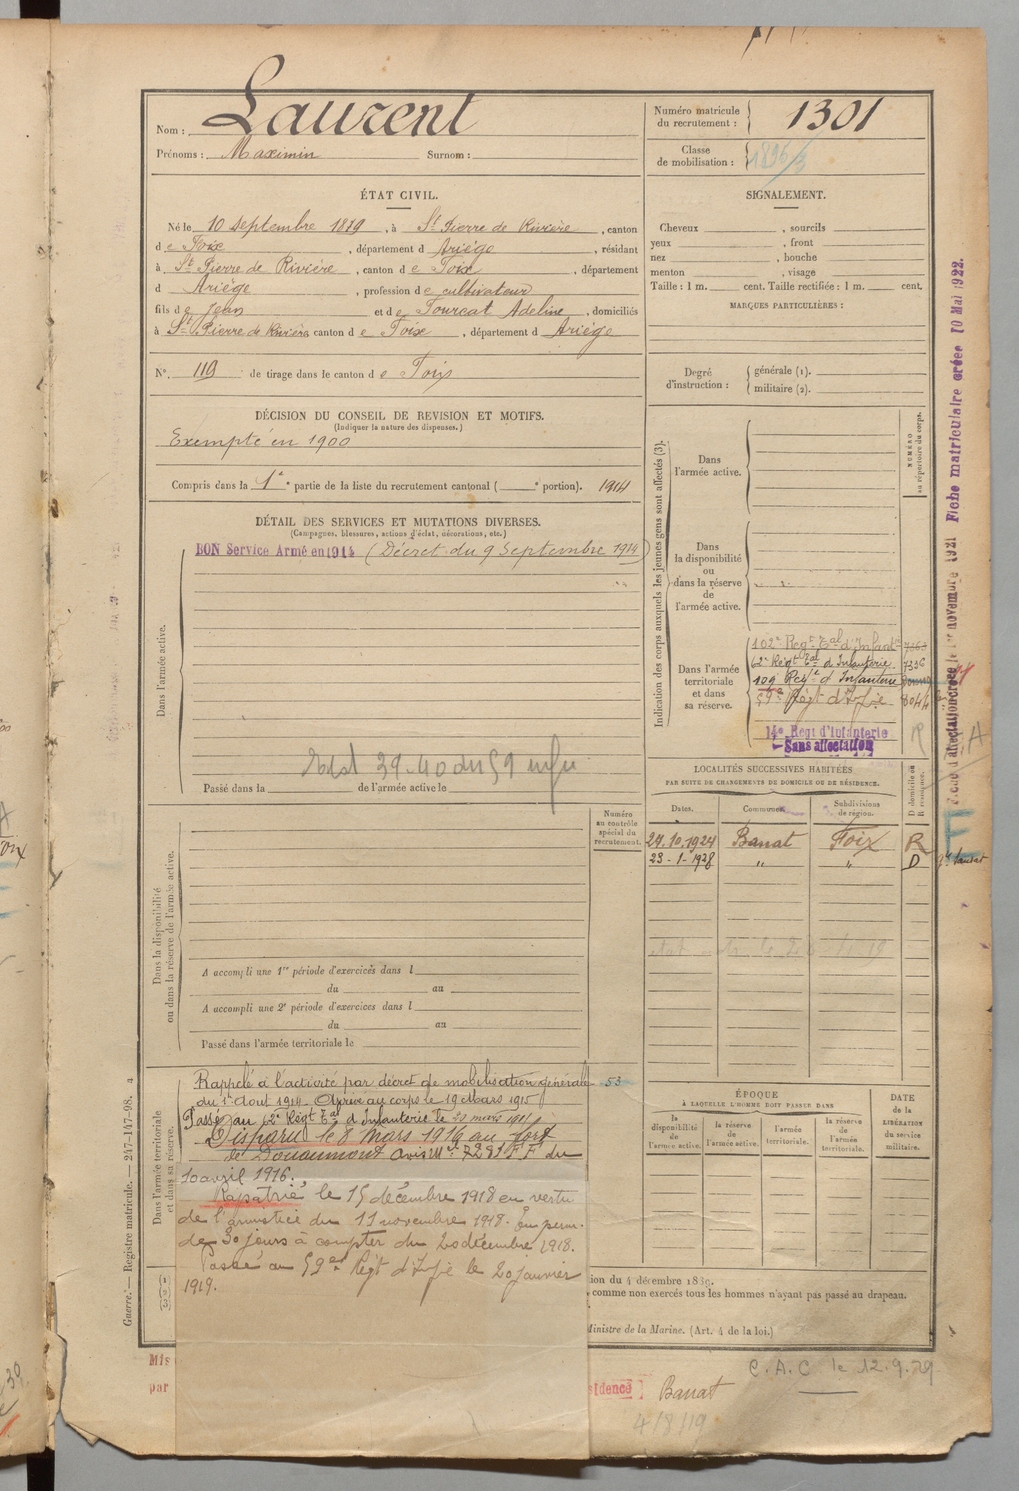 Nom : Laurent
Prénoms : Maximin Surnom :
Numéro matricule du recrutement : 1301
Classe de mobilisation :
ÉTAT CIVIL.
Né le 10 septembre 1879, à St Pierre de Rivière, canton
de Foix, département d Ariège, résidant
à St Pierre de Rivière, canton de Foix, département
d Ariège, profession de cultivateur
fils de Jean et de Fourcat Adeline, domiciliés
à St Pierre de Rivière canton de Foix, département d Ariège
N° 119 de tirage dans le canton de Foix
DÉCISION DU CONSEIL DE REVISION ET MOTIFS.
(Indiquer la nature des dispenses.)
Exempté en 1900
Compris dans la 1e partie de la liste du recrutement cantonal ( e portion). 1914
DÉTAIL DES SERVICES ET MUTATIONS DIVERSES.
(Campagnes, blessures, actions d'éclat, décorations, etc.)
BON Service Armé en 1914 (Décret du 9 Septembre 1914)
Dans l'armée active.
39-40 du 59
Passé dans la de l'armée active le
Numéro au contrôle spécial du recrutement.
Dans la disponibilité ou dans la réserve de l'armée active.
A accompli une 1re période d'exercices dans l
du au
A accompli une 2e période d'exercices dans l
du au
Passé dans l'armée territoriale le
Dans l'armée territoriale et dans sa réserve.
Rappelé à l'activité par décret de mobilisation générale 53
du 1er Août 1914. Arrivé au corps le 19 Mars 1915
Passé au 62e Régt Tal d'Infanterie le
Disparu le 8 mars 1916 au fort
de Douaumont avis M. 7281 FF du
10 avril 1916.
Rapatrié le 15 décembre 1918 en vertu
de l'armistice du 11 novembre 1918. En perm.
de 30 jours à compter du 20 décembre 1918.
Passé au 59e Régt d'Infie le 20 janvier
1919.
SIGNALEMENT.
Cheveux , sourcils
yeux , front
nez , bouche
menton , visage
Taille : 1 m. cent. Taille rectifiée : 1 m. cent.
MARQUES PARTICULIÈRES :
Degré d'instruction : générale (1).
militaire (2).
Indication des corps auxquels les jeunes gens sont affectés (3).
NUMÉRO au répertoire du corps.
Dans l'armée active.
Dans la disponibilité ou dans la réserve de l'armée active.
Dans l'armée territoriale et dans sa réserve.
102e Régt Tal d'Infanterie
62e Régt Tal d'Infanterie. 7336
109 Régt d'Infanterie
59e Régt d'Infie 8044
14e Régt d'Infanterie
Sans affectation
LOCALITÉS SUCCESSIVES HABITÉES
PAR SUITE DE CHANGEMENTS DE DOMICILE OU DE RÉSIDENCE.
Dates. Communes. Subdivisions de région. D domicile ou R résidence.
27.10.1924 Banat Foix R
23-1-1928 " " D
ÉPOQUE
À LAQUELLE L'HOMME DOIT PASSER DANS
la disponibilité de l'armée active.
la réserve de l'armée active.
l'armée territoriale.
la réserve de l'armée territoriale.
DATE de la LIBÉRATION du service militaire.
ion du 4 décembre 1889.
comme non exercés tous les hommes n'ayant pas passé au drapeau.
Ministre de la Marine. (Art. 4 de la loi.)
C.A.C le 12.9.29
Mis
par
sidence Banat
4/8/19
Fiche matriculaire créée 10 Mai 1922.
novembre 1921
Guerre. — Registre matricule. — 247-147-98. 4